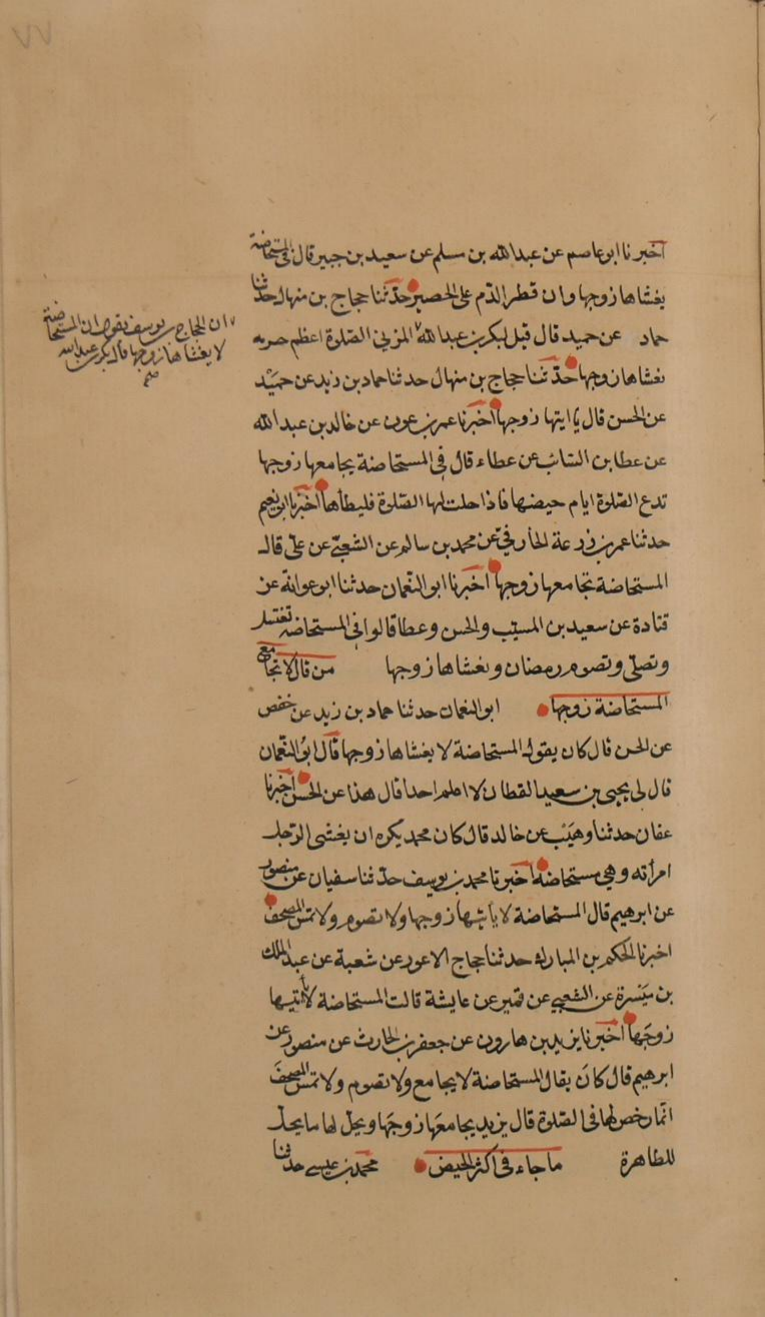 ٧٧
اخبرنا ابو عاصم عن عبدالله بن مسلم عن سعيد بن جبير قال فى المستحاضة
يغشاها زوجها وان قطر الدّم على الحصير حدّثنا حجاج بن منهال حدثنا
حماد عن حميد قال قيل لبكر بن عبدالله المزنى الصّلوة اعظم حرمه
يغشاها زوجها حدّثنا حجاج بن منهال حدثنا حماد بن زيد عن حميد
عن الحسن قال يأتيها زوجها اخبرنا عمر بن عون عن خالد بن عبد الله
عن عطا بن السّائب عن عطاء قال فى المستحاضة يجامعها زوجها
تدع الصّلوة ايام حيضها فاذا حلت لها الصّلوة فليطأها اخبرنا ابو نعيم
حدثنا عمر بن زرعة الخارفىّ عن محمد بن سالم عن الشعبىّ عن علىّ قال
المستحاضة تجامعها زوجها اخبرنا ابو النّعمان حدثنا ابو عوانة عن
قتادة عن سعيد بن المسيّب والحسن وعطا قالوا فى المستحاضه تغتسل
وتصلّى وتصوم رمضان ويغشاها زوجها من قال لا تجامع
المستحاضة زوجها ابو النعمان حدثنا حماد بن زيد عن حفص
عن الحسن قال كان يقول المستحاضة لا يغشاها زوجها قال ابو النّعمان
قال لى يحيى بن سعيد القطان لا اعلم احدا قال هذا عن الحسن اخبرنا
عفان حدثنا وهيب عن خالد قال كان محمد يكره ان يغشى الرّجل
امرأته وهى مستحاضة اخبرنا محمد بن يوسف حدّثنا سفيان عن منصور
عن ابرهيم قال المستحاضة لا يأتيها زوجها ولا تصوم ولا تمسّ المصحف
اخبرنا الحكم بن المبارك حدثنا حجاج الاعور عن شعبة عن عبد الملك
بن ميسرة عن الشعبى عن قمير عن عايشة قالت المستحاضة لا يأتيها
زوجَها اخبرنا يزيد بن هارون عن جعفر بن الحارث عن منصور عن
ابرهيم قال كانَ يقال المستحاضة لا يجامع ولا تصوم ولا تمسّ المصحفَ
انّما رخص لها فى الصّلوة قال يزيد يجامعَها زوجَها ويحلّ لها ما يحلّ
للطاهرة ما جاء فى اكثر الحيض محمد بن عيسى حدثنا
ان الحجاج بن يوسف يقول ان المستحاضة
لا يغشاها زوجها قال بكر بن عبد الله
صح